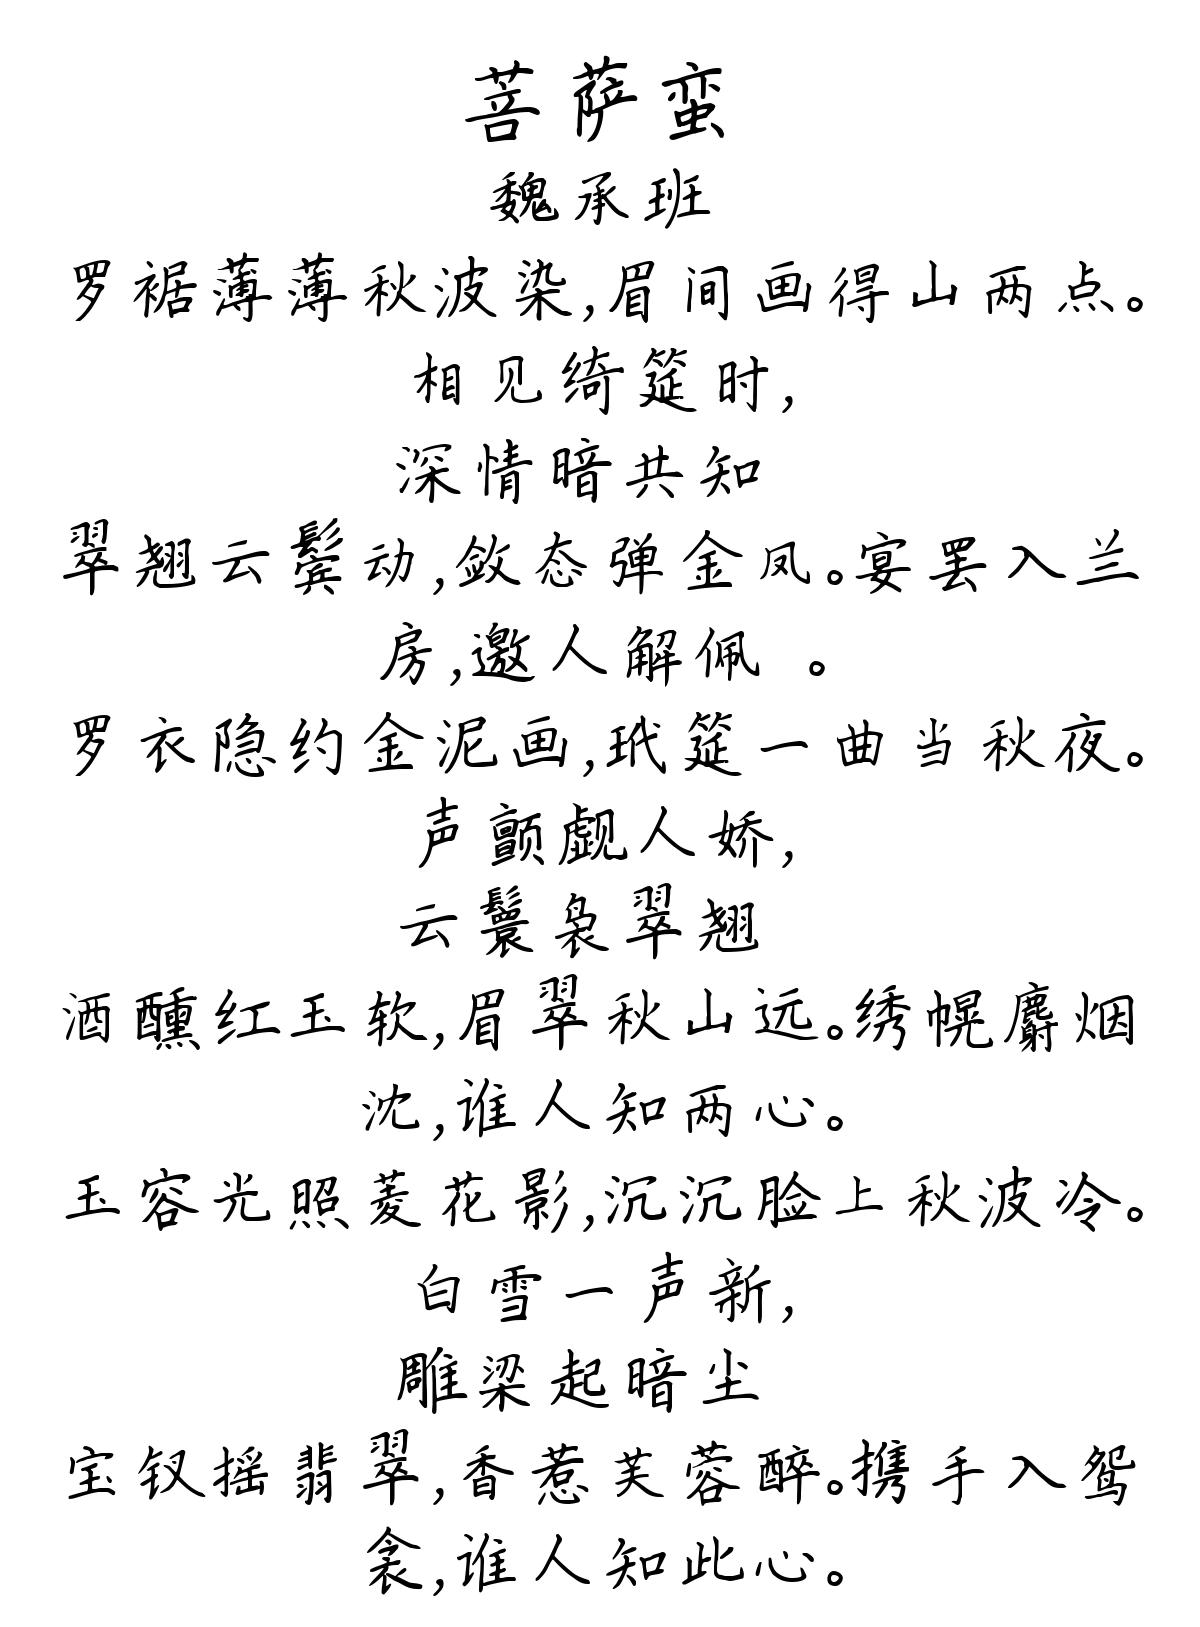 菩萨蛮
魏承班
罗裾薄薄秋波染,眉间画得山两点。
相见绮筵时,
深情暗共知
翠翘云鬓动,敛态弹金凤。宴罢入兰
房,邀人解佩 。
罗衣隐约金泥画,玳筵一曲当秋夜。
声颤觑人娇,
云鬟袅翠翘
酒醺红玉软,眉翠秋山远。绣幌麝烟
沈,谁人知两心。
玉容光照菱花影,沉沉脸上秋波冷。
白雪一声新,
雕梁起暗尘
宝钗摇翡翠,香惹芙蓉醉。携手入鸳
衾,谁人知此心。